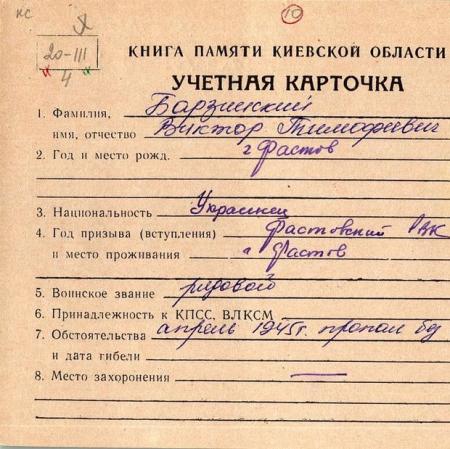 кс
10
20-III
4
КНИГА ПАМЯТИ КИЕВСКОЙ ОБЛАСТИ
УЧЕТНАЯ КАРТОЧКА
1. Фамилия, Барзинский
имя, отчество Виктор Тимофеевич
2. Год и место рожд. г Фастов
3. Национальность Украинец
4. Год призыва (вступления) Фастовский РВК
и место проживания г Фастов
5. Воинское звание рядовой
6. Принадлежность к КПСС, ВЛКСМ
7. Обстоятельства апрель 1945г. пропал б/
и дата гибели
8. Место захоронения —